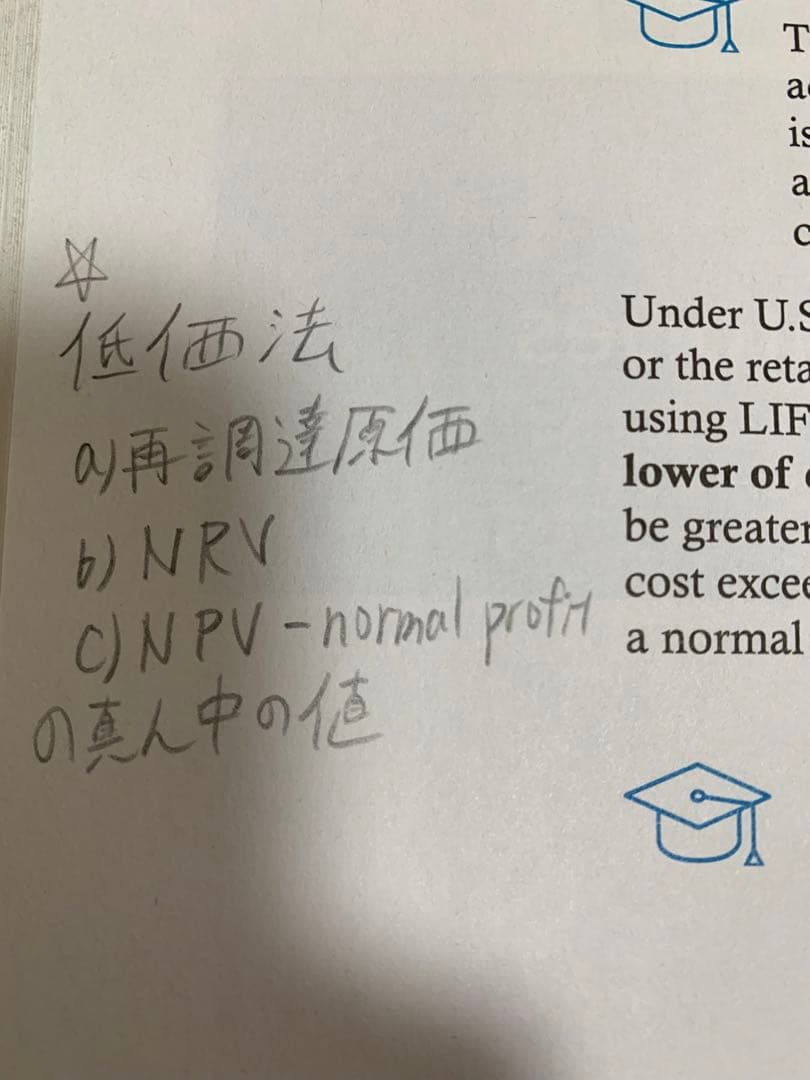 ☆
低価法
a)再調達原価
b)NRV
c)NPV-normal profit
の真ん中の値
T
a
is
a
c
Under U.S
or the reta
using LIF
lower of
be greater
cost excee
a normal